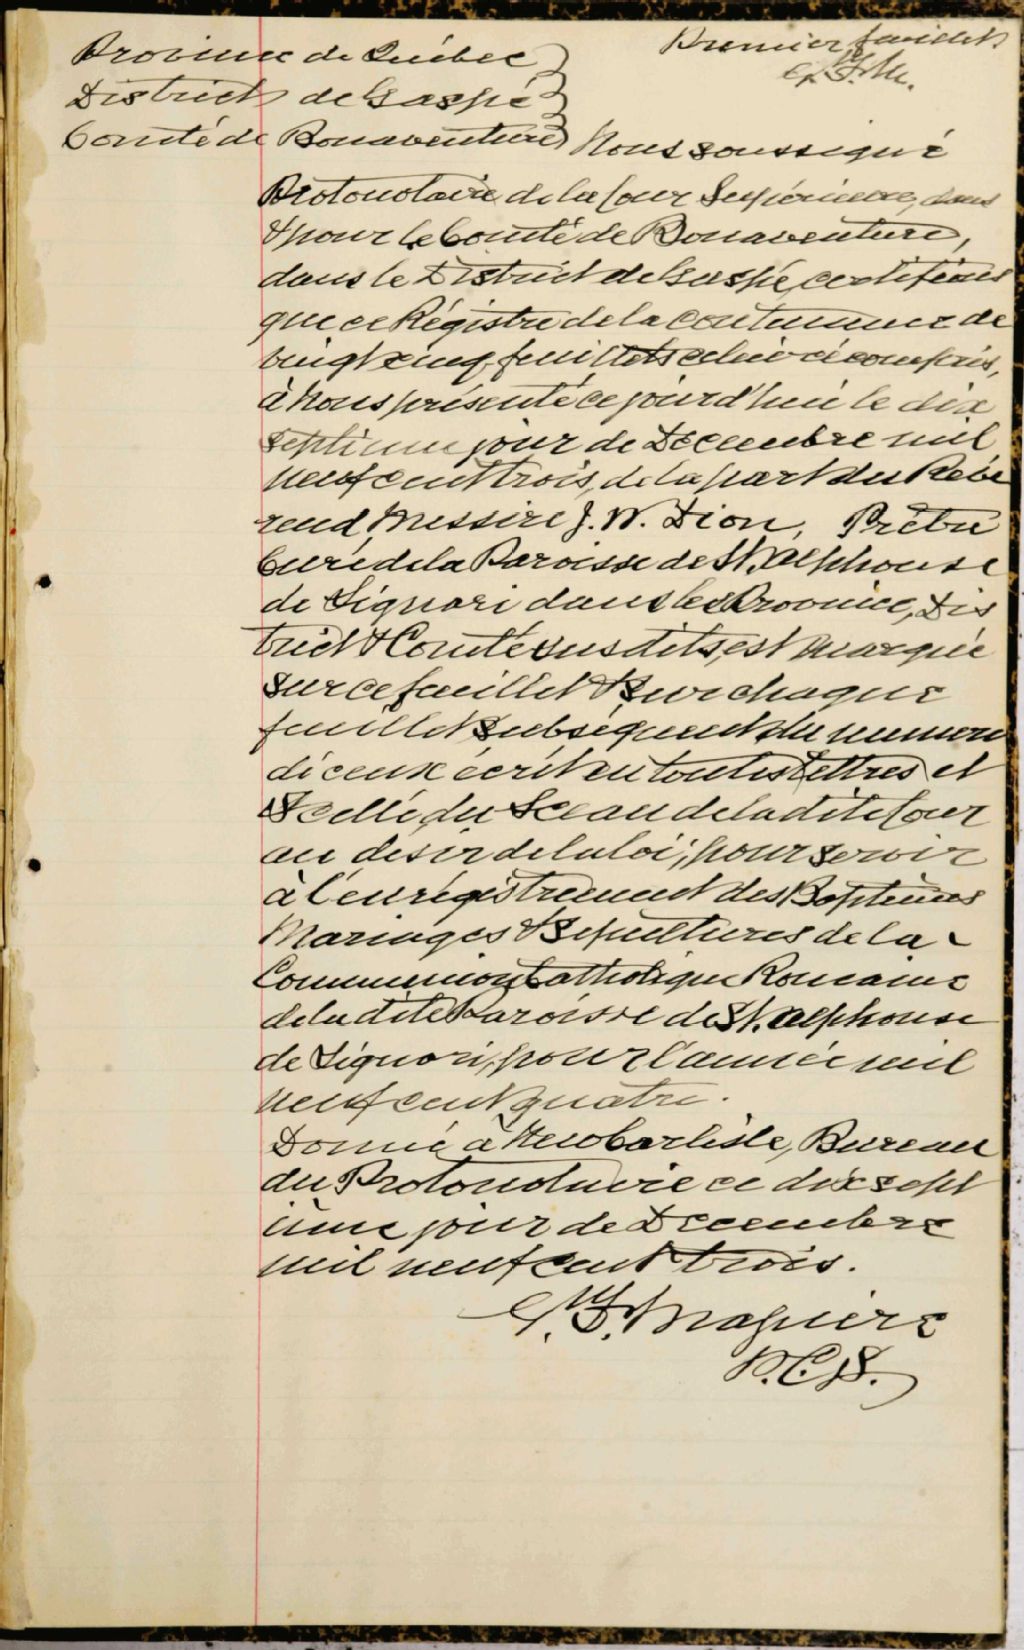 Premier feuillet
Province de Québec
District de Gaspé
Comté de Bonaventure Nous soussigné
Protonotaire de la Cour Supérieure, dans
& pour le Comté de Bonaventure,
dans le District de Gaspé, certifions
que ce Régistre de la contenance de
vingt cinq feuillets celui ci compris,
à Nous présenté ce jourd'hui le dix
septieme jour de Decembre mil
neuf cent trois, de la part du Révé
rend Messire J. W. Dion, Prêtre
Curé de la Paroisse de St. Alphonse
de Liguori dans les Province, Dis
trict & Comté susdits, est marqué
sur ce feuillet & sur chaque
feuillet subséquent du numero
diceux écrit en toutes lettres et
Scellé du Sceau de la dite Cour
au desir de la loi, pour servir
à l'enrégistrement des Baptêmes
Mariages & Sepultures de la
Communion Catholique Romaine
de la dite Paroisse de St. Alphonse
de Liguori, pour l'année mil
neuf cent quatre.
Donné à New Carlisle, Bureau
du Protonotaire ce dix sept
ieme jour de Decembre
mil neuf cent trois.
F. Maguire
P.C.S.